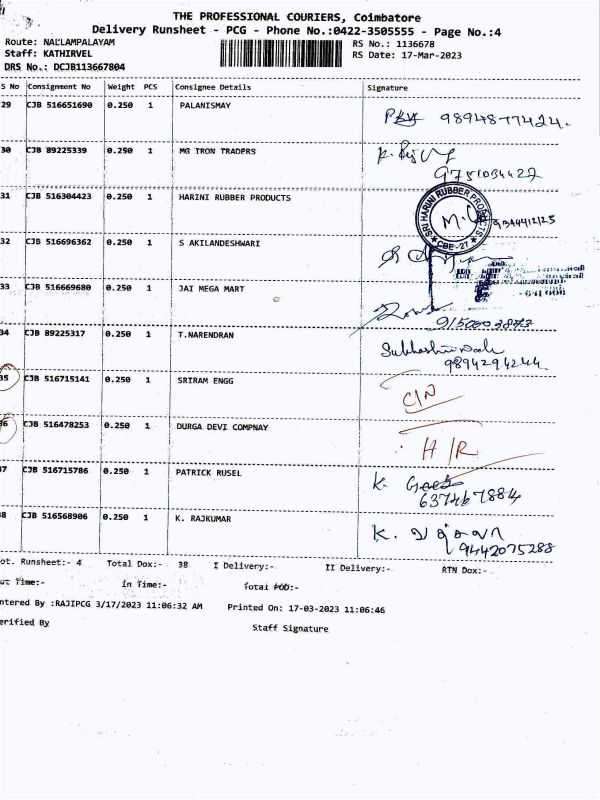 THE PROFESSIONAL COURIERS, Coimbatore
Delivery Runsheet - PCG - Phone No.:0422-3505555 - Page No.:4
Route: NALLAMPALAYAM RS No.: 1136678
Staff: KATHIRVEL RS Date: 17-Mar-2023
DRS No.: DCJB113667804
S No Consignment No Weight PCS Consignee Details Signature
29 CJB 516651690 0.250 1 PALANISMAY 9894877424.
30 CJB 89225339 0.250 1 MG TRON TRADERS
9751034427
31 CJB 516304423 0.250 1 HARINI RUBBER PRODUCTS
SRI HARINI RUBBER PRODUCTS
CBE-27
32 CJB 516696362 0.250 1 S AKILANDESHWARI
33 CJB 516669680 0.250 1 JAI MEGA MART
34 CJB 89225317 0.250 1 T.NARENDRAN
9894294244
35 CJB 516715141 0.250 1 SRIRAM ENGG C/N
36 CJB 516478253 0.250 1 DURGA DEVI COMPNAY H/R
37 CJB 516715786 0.250 1 PATRICK RUSEL K.
6374671884
38 CJB 516568906 0.250 1 K. RAJKUMAR K.
9442075288
ot. Runsheet:- 4 Total Dox:- 38 I Delivery:- II Delivery:- RTN Dox:-
ut Time:- In Time:- Total POD:-
ntered By :RAJIPCG 3/17/2023 11:06:32 AM Printed On: 17-03-2023 11:06:46
erified By Staff Signature